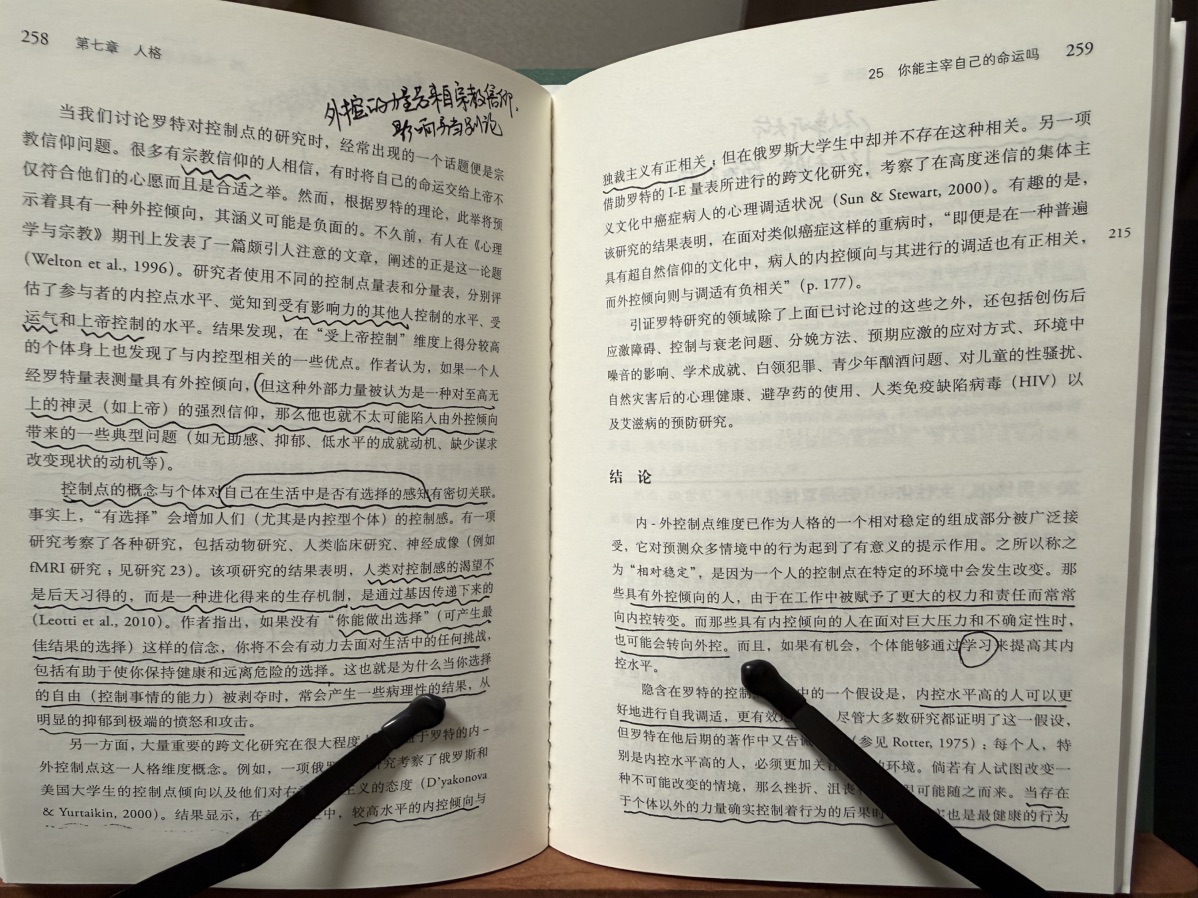 258 第七章 人格
外控的力量若来自宗教信仰,
影响另当别论
当我们讨论罗特对控制点的研究时,经常出现的一个话题便是宗
教信仰问题。很多有宗教信仰的人相信,有时将自己的命运交给上帝不
仅符合他们的心愿而且是合适之举。然而,根据罗特的理论,此举将预
示着具有一种外控倾向,其涵义可能是负面的。不久前,有人在《心理
学与宗教》期刊上发表了一篇颇引人注意的文章,阐述的正是这一论题
(Welton et al., 1996)。研究者使用不同的控制点量表和分量表,分别评
估了参与者的内控点水平、觉知到受有影响力的其他人控制的水平、受
运气和上帝控制的水平。结果发现,在“受上帝控制”维度上得分较高
的个体身上也发现了与内控型相关的一些优点。作者认为,如果一个人
经罗特量表测量具有外控倾向,但这种外部力量被认为是一种对至高无
上的神灵(如上帝)的强烈信仰,那么他也就不太可能陷入由外控倾向
带来的一些典型问题(如无助感、抑郁、低水平的成就动机、缺少谋求
改变现状的动机等)。
控制点的概念与个体对自己在生活中是否有选择的感知有密切关联。
事实上,“有选择”会增加人们(尤其是内控型个体)的控制感。有一项
研究考察了各种研究,包括动物研究、人类临床研究、神经成像(例如
fMRI 研究;见研究 23)。该项研究的结果表明,人类对控制感的渴望不
是后天习得的,而是一种进化得来的生存机制,是通过基因传递下来的
(Leotti et al., 2010)。作者指出,如果没有“你能做出选择”(可产生最
佳结果的选择)这样的信念,你将不会有动力去面对生活中的任何挑战,
包括有助于使你保持健康和远离危险的选择。这也就是为什么当你选择
的自由(控制事情的能力)被剥夺时,常会产生一些病理性的结果,从
明显的抑郁到极端的愤怒和攻击。
另一方面,大量重要的跨文化研究在很大程度 于罗特的内-
外控制点这一人格维度概念。例如,一项俄 究考察了俄罗斯和
美国大学生的控制点倾向以及他们对右 主义的态度(D'yakonova
& Yurtaikin, 2000)。结果显示,在 中,较高水平的内控倾向与
25 你能主宰自己的命运吗 259
独裁主义有正相关;但在俄罗斯大学生中却并不存在这种相关。另一项
借助罗特的 I-E 量表所进行的跨文化研究,考察了在高度迷信的集体主
义文化中癌症病人的心理调适状况(Sun & Stewart, 2000)。有趣的是,
该研究的结果表明,在面对类似癌症这样的重病时,“即便是在一种普遍
215
具有超自然信仰的文化中,病人的内控倾向与其进行的调适也有正相关,
而外控倾向则与调适有负相关”(p. 177)。
引证罗特研究的领域除了上面已讨论过的这些之外,还包括创伤后
应激障碍、控制与衰老问题、分娩方法、预期应激的应对方式、环境中
噪音的影响、学术成就、白领犯罪、青少年酗酒问题、对儿童的性骚扰、
自然灾害后的心理健康、避孕药的使用、人类免疫缺陷病毒(HIV)以
及艾滋病的预防研究。
结 论
内-外控制点维度已作为人格的一个相对稳定的组成部分被广泛接
受,它对预测众多情境中的行为起到了有意义的提示作用。之所以称之
为“相对稳定”,是因为一个人的控制点在特定的环境中会发生改变。那
些具有外控倾向的人,由于在工作中被赋予了更大的权力和责任而常常
向内控转变。而那些具有内控倾向的人在面对巨大压力和不确定性时,
也可能会转向外控。而且,如果有机会,个体能够通过学习来提高其内
控水平。
隐含在罗特的控制 中的一个假设是,内控水平高的人可以更
好地进行自我调适,更有效 尽管大多数研究都证明了这一假设,
但罗特在他后期的著作中又告 (参见 Rotter, 1975):每个人,特
别是内控水平高的人,必须更加关注 的环境。倘若有人试图改变一
种不可能改变的情境,那么挫折、沮丧 可能随之而来。当存在
于个体以外的力量确实控制着行为的后果时 也是最健康的行为